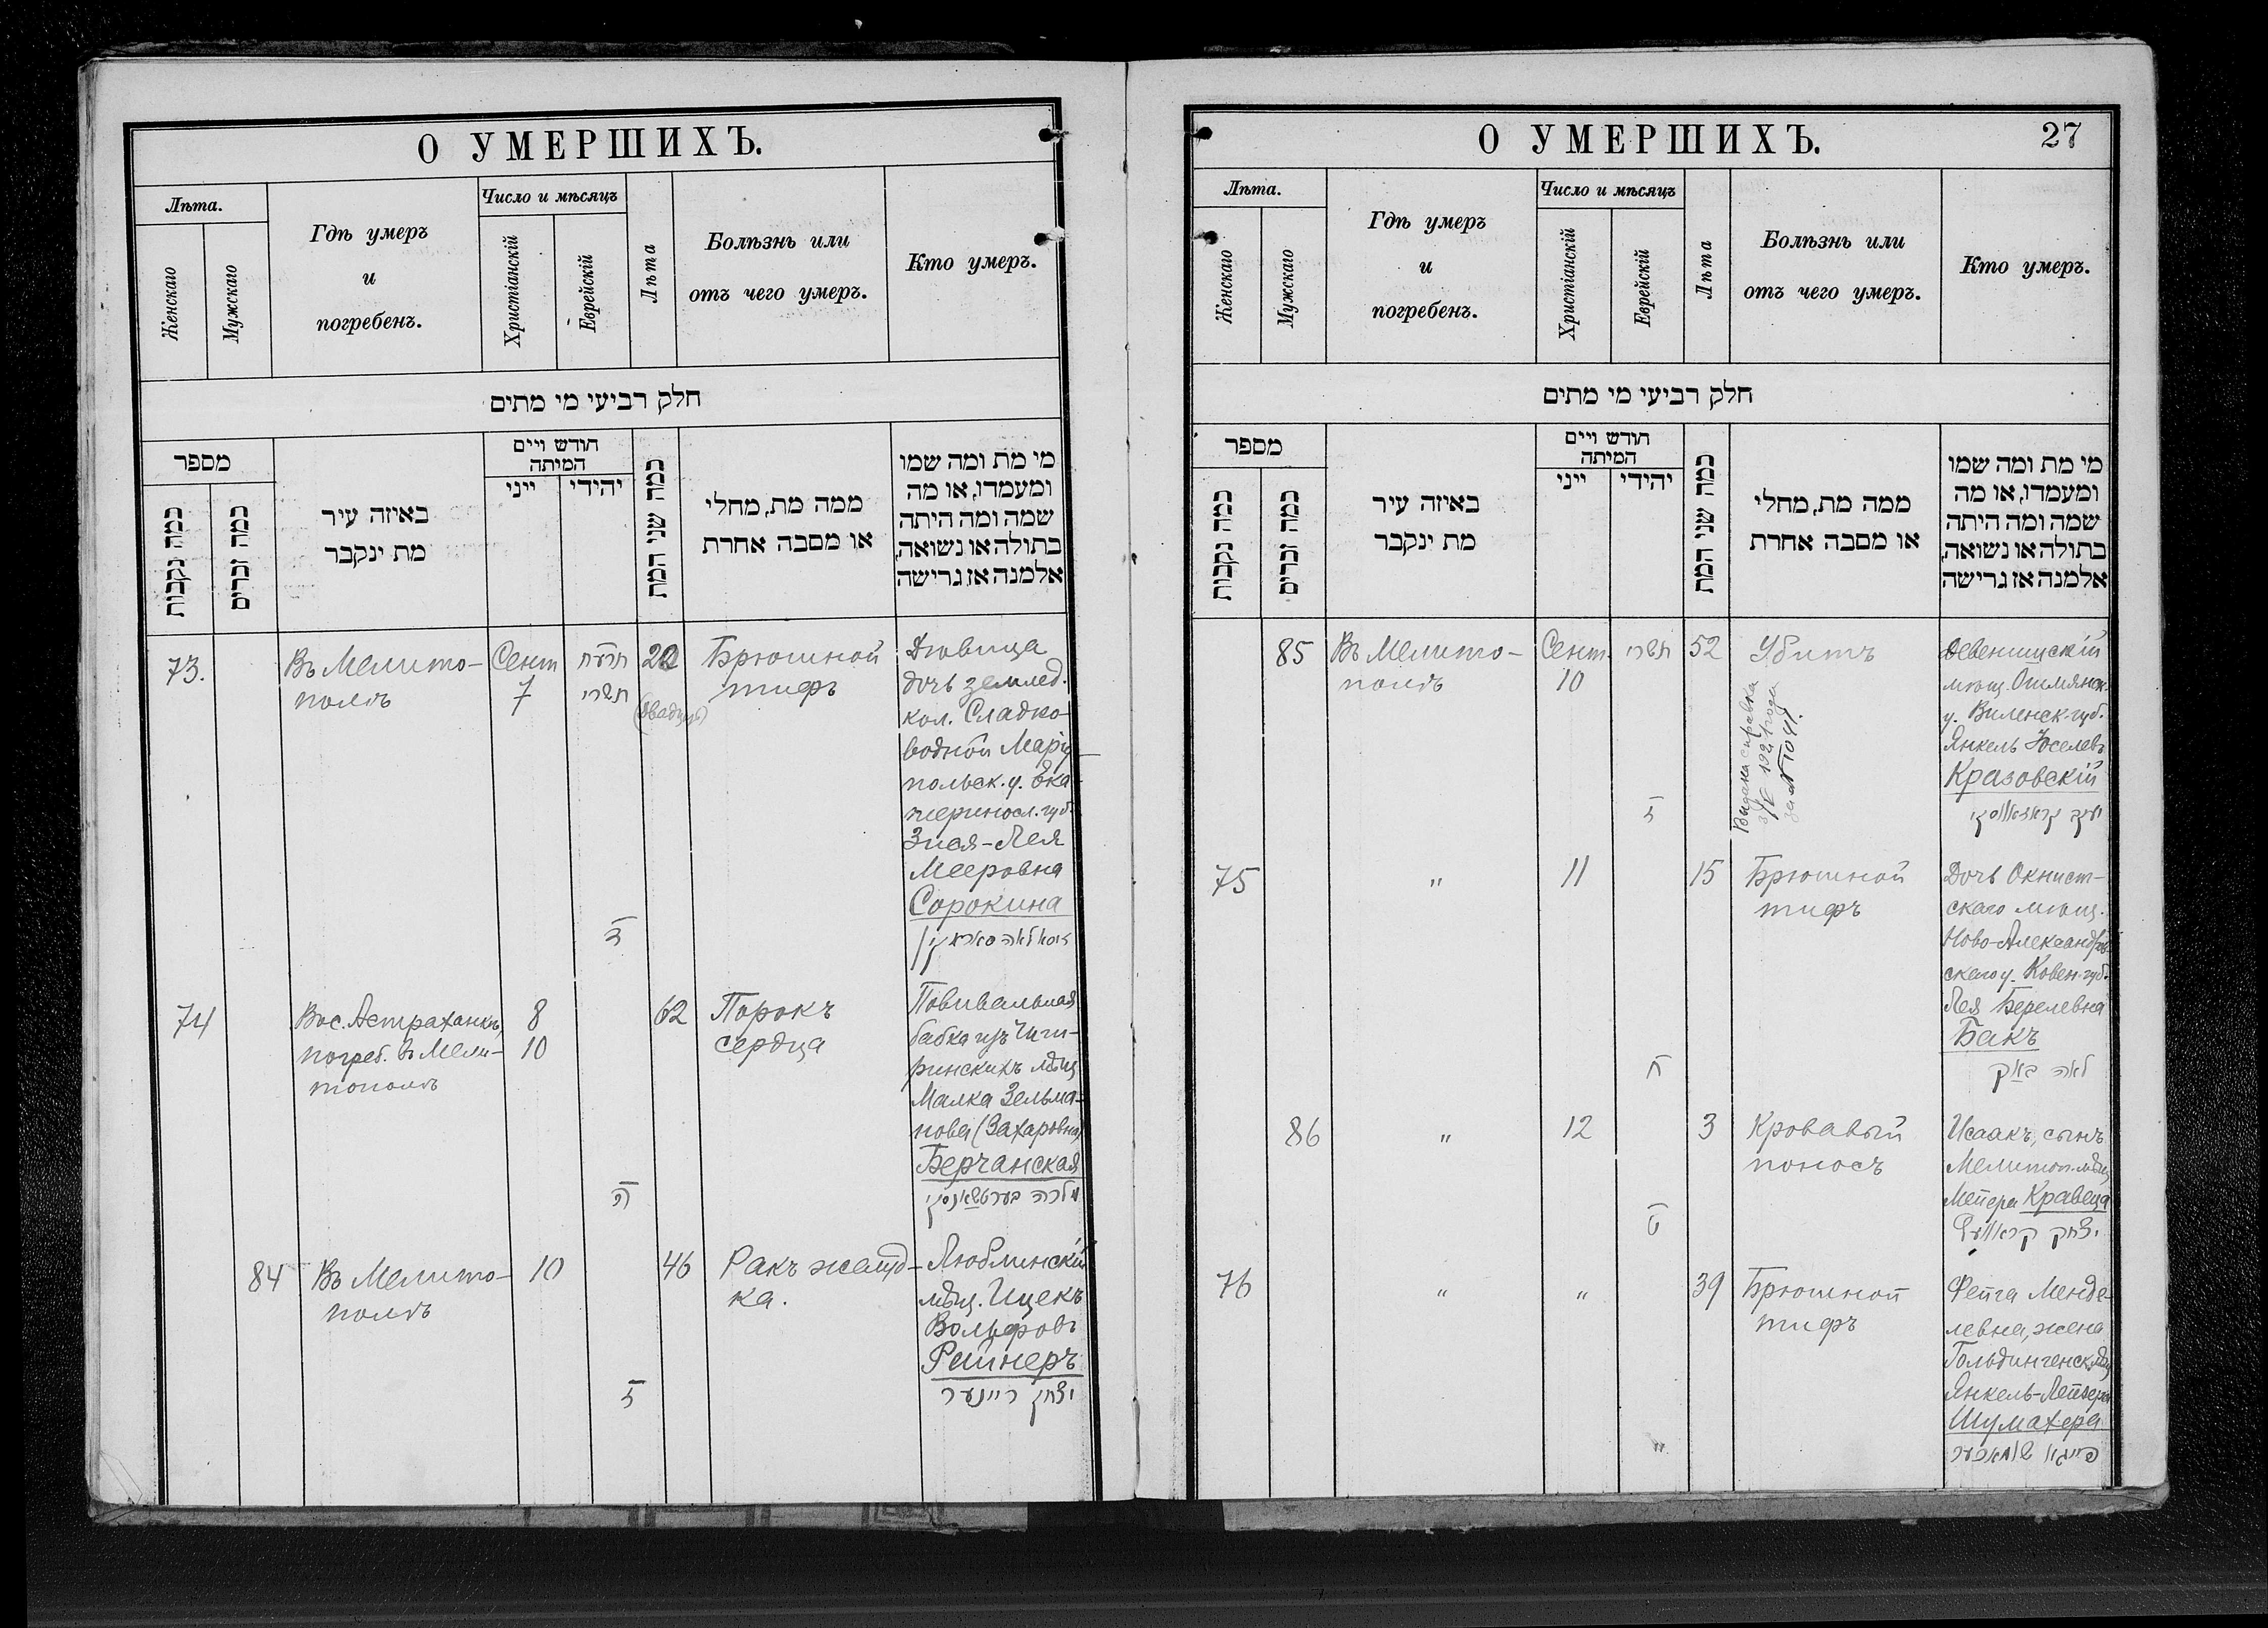 О УМЕРШИХЪ.
Лѣта.
Женскаго
Мужскаго
Гдѣ умеръ
и
погребенъ.
Число и мѣсяцъ
Христіанскій
Еврейскій
Лѣта
Болѣзнь или
отъ чего умеръ.
Кто умеръ.
חלק רביעי מי מתים
מספר
כמה נקבות
כמה זכרים
באיזה עיר
מת ינקבר
חודש ויים
המיתה
ייני
יהידי
כמה שני המת
ממה מת, מחלי
או מסבה אחרת
מי מת ומה שמו
ומעמדו, או מה
שמה ומה היתה
בתולה או נשואה,
אלמנה אז גרישה
73.
Въ Мелито-
полѣ
Сент
7
תרעח
תשרי
ד
20
(двадцать)
Брюшной
тифъ
Дѣвица
дочь землед.
кол. Сладко-
водной Маріу-
польск. у. Ека-
териносл. губ.
Зися-Лея
Мееровна
Сорокина
74
Вос. Астраханкѣ,
погреб. въ Мели-
тополѣ
8
10
ה
62
Порокъ
сердца
Повивальная
бабка изъ Чиги-
ринскихъ мѣщ
Малка Зельма-
нова (Захаровна)
Берчанская
מלכה בערטשאנסקי
84
Въ Мелито-
полѣ
10
ז
46
Ракъ желуд-
ка.
Люблинскій
мѣщ. Ицекъ
Вольфовъ
Рейнеръ
יצחק ריינער
О УМЕРШИХЪ.
27
Лѣта.
Женскаго
Мужскаго
Гдѣ умеръ
и
погребенъ.
Число и мѣсяцъ
Христіанскій
Еврейскій
Лѣта
Болѣзнь или
отъ чего умеръ.
Кто умеръ.
חלק רביעי מי מתים
מספר
כמה נקבות
כמה זכרים
באיזה עיר
מת ינקבר
חודש ויים
המיתה
ייני
יהידי
כמה שני המת
ממה מת, מחלי
או מסבה אחרת
מי מת ומה שמו
ומעמדו, או מה
שמה ומה היתה
בתולה או נשואה,
אלמנה אז גרישה
85
Въ Мелито-
полѣ
Сент.
10
תשרי
ז
52
Убитъ
Выдана справка
1924 года
за № 1041.
Девенишскій
мѣщ. Ошмянск.
у. Виленск. губ.
Янкель Іоселевъ
Кразовскій
75
"
11
ח
15
Брюшной
тифъ
Дочь Окнист-
скаго мѣщ.
Ново-Александров
скаго у. Ковен. губ.
Лея Берелевна
Бакъ
לאה באק
86
"
12
ט
3
Кровавый
поносъ
Исаакъ, сынъ
Мелитоп. мѣщ
Мейера Кравеца
יצחק קראוועץ
76
"
"
"
39
Брюшной
тифъ
Фейга Менде-
левна, жена
Гольдингенск. мѣщ
Янкель-Лейзера
Шумахера
פייגא שומאכער